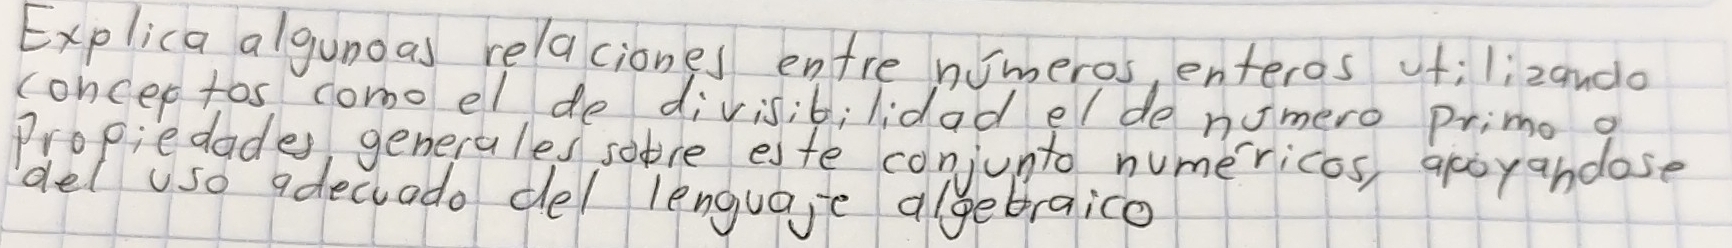 Explica algunoas relaciones entre números, enteros utilizando
conceptos como el de divisibilidad el de número primo o
Propiedades generales sobre este conjunto numéricos, apoyandose
del uso adecuado del lenguaje algebraico